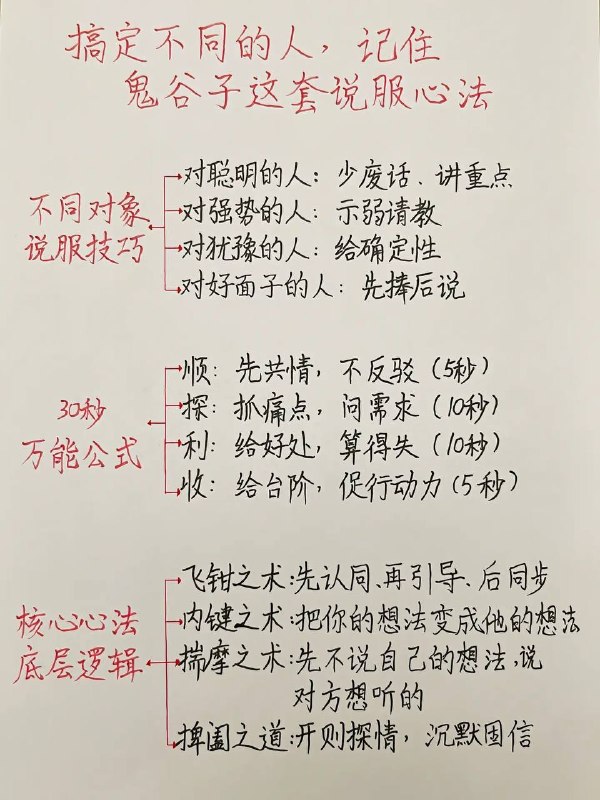 搞定不同的人，记住
鬼谷子这套说服心法
不同对象
说服技巧
对聪明的人：少废话、讲重点
对强势的人：示弱请教
对犹豫的人：给确定性
对好面子的人：先捧后说
30秒
万能公式
顺：先共情，不反驳（5秒）
探：抓痛点，问需求（10秒）
利：给好处，算得失（10秒）
收：给台阶，促行动力（5秒）
核心心法
底层逻辑
飞钳之术：先认同、再引导、后同步
内键之术：把你的想法变成他的想法
揣摩之术：先不说自己的想法，说
对方想听的
捭阖之道：开则探情，沉默困信